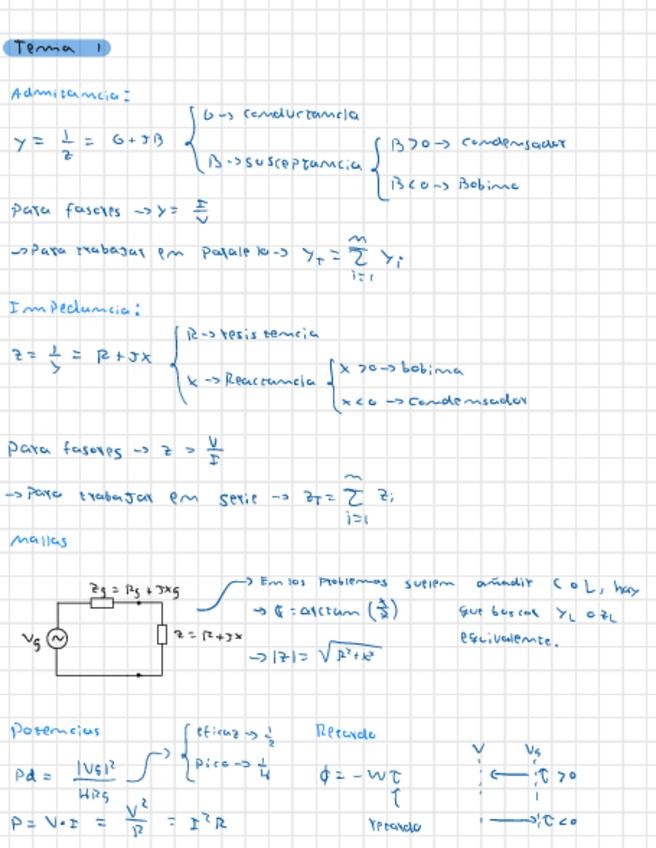 Tema 1
Admitancia:
Y = 1/Z = G + JB
G → conductancia
B → susceptancia
B>0 → condensador
B<0 → Bobina
Para fasores → Y = I/V
→ Para trabajar en paralelo → Y_T = Σ_{i=1}^{n} Y_i
Impedancia:
Z = 1/Y = R + JX
R → resistencia
X → Reactancia
X >0 → bobina
X<0 → condensador
Para fasores → Z = V/I
→ Para trabajar en serie → Z_T = Σ_{i=1}^{n} Z_i
Mallas
Zg = Rg + JXg
Vg
Z = R + JX
→ En los problemas suelen añadir C o L, hay
que buscar Y_L o Z_L
equivalente.
→ |Z| = √(R²+X²)
Potencias
Pd = |Vg|²/4Rg
eficaz → 1/2
pico → 1/4
P = V·I = V²/R = I²R
Retardo
ϕ = -Wτ
retardo
V Vg
τ >0
τ <0